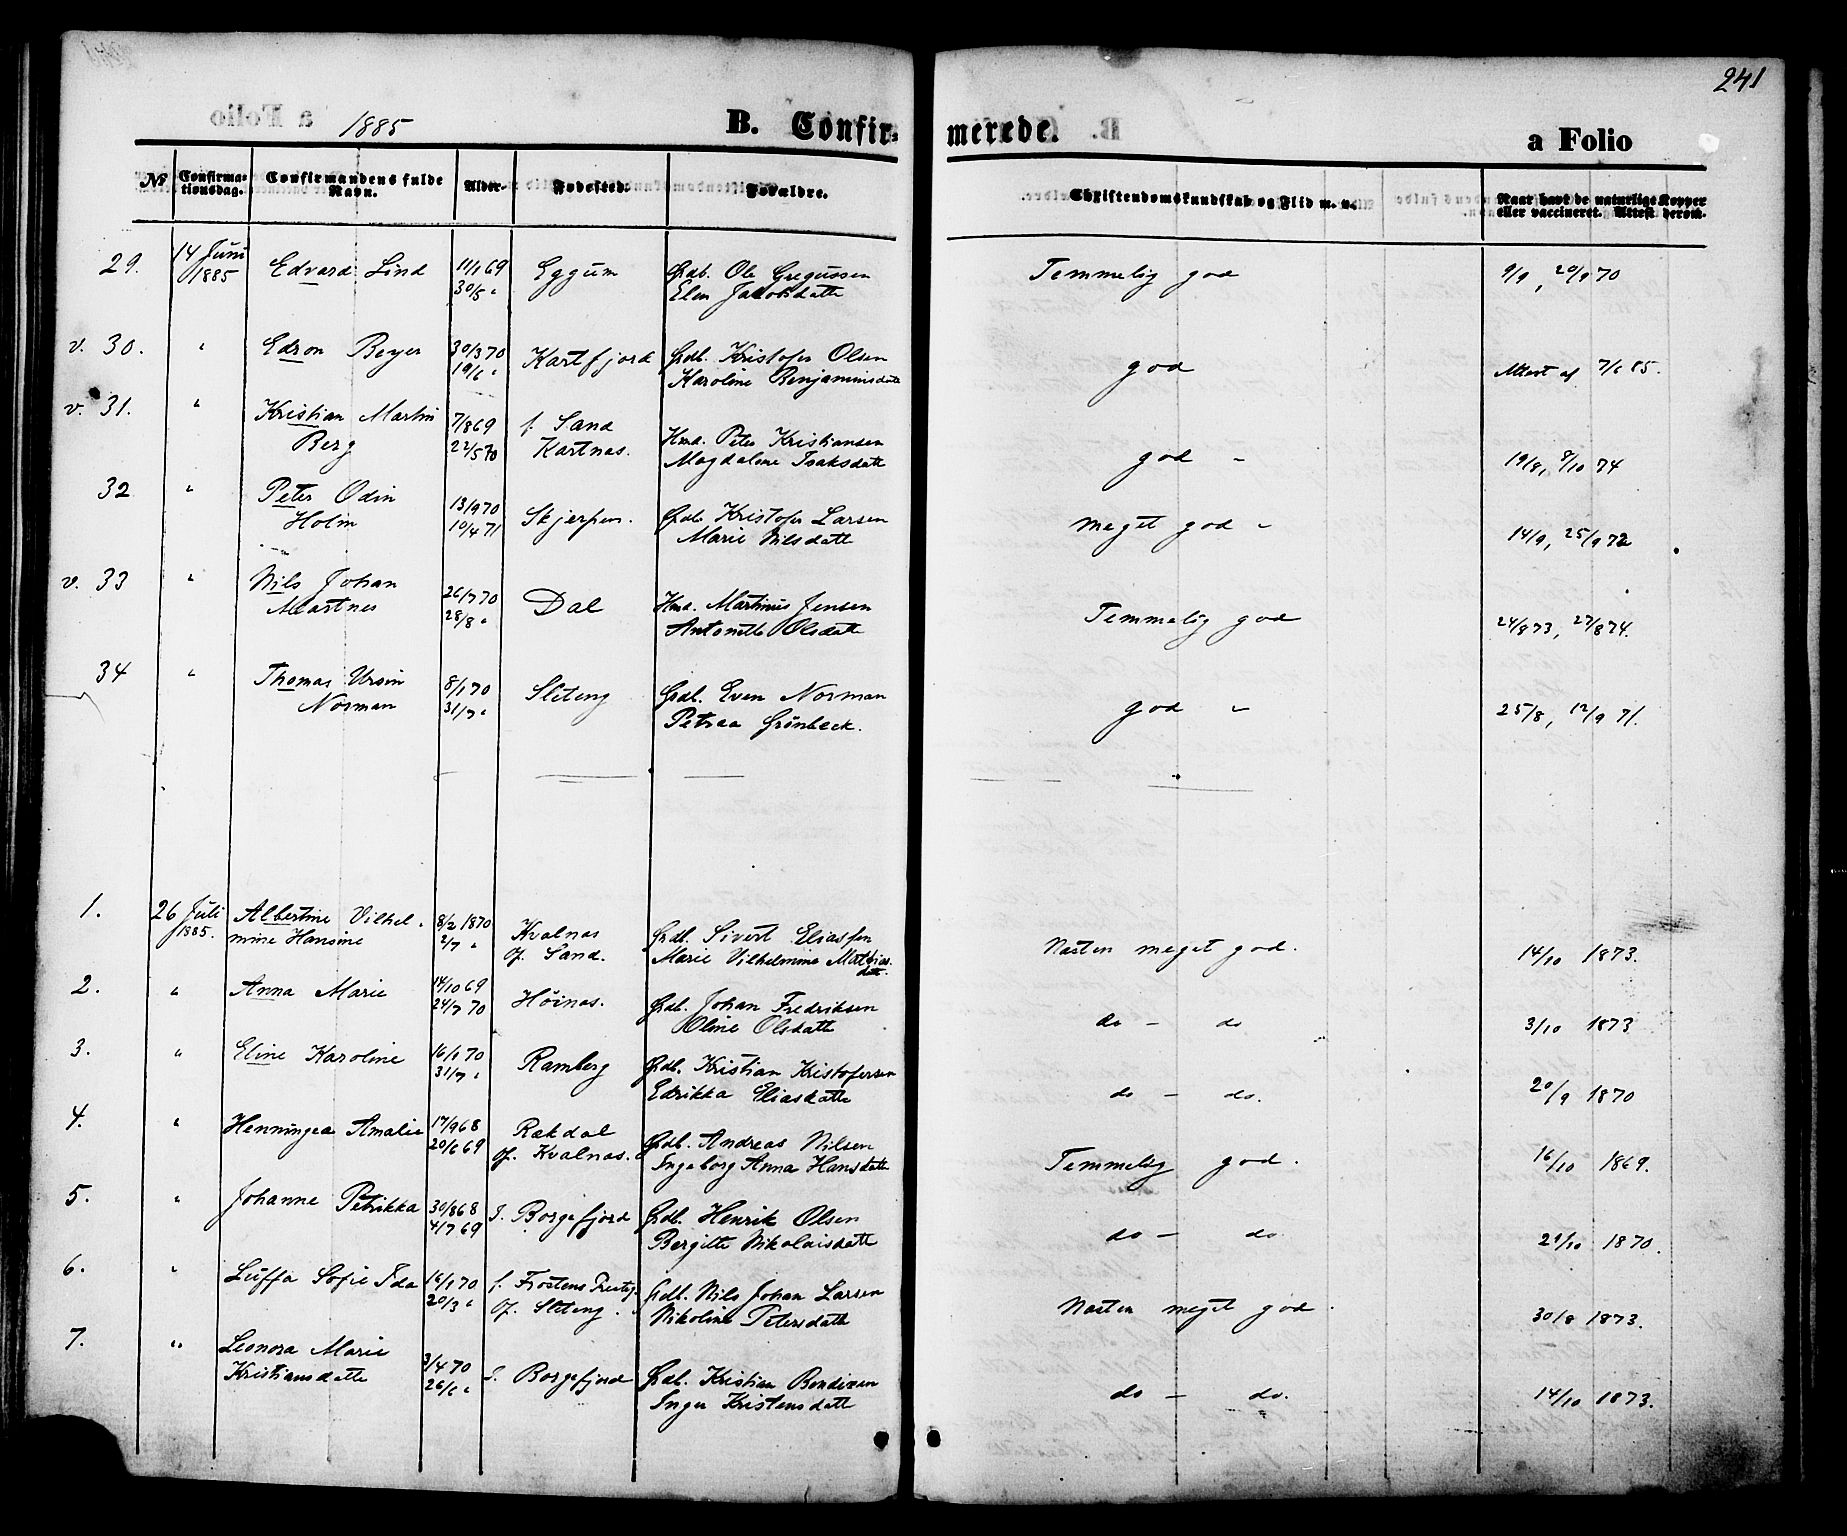 241
1885 B. Confir- merede. a Folio
№ Confirma-tionsdag. Confirmandens fulde Navn. Alder. Fødested. Forældre. Christendomskundskab og Flid m. v. Naar havt de naturlige Kopper eller vaccineret. Attest derom.
29. 14 Juni 1885 Edvard Lind 11/1 69 Eggum Gdb. Ole Gregussen Temmelig god 9/9, 20/9 70
30/5 " Elen Jakobsdatt
v. 30. " Edvon Beyer 30/3 70 Kartfjord Gdb. Kristofer Olsen god Attest af 7/6 85.
19/6 " Karoline Benjaminsdatt
v. 31. " Kristian Martin 7/8 69 f. Sand Hmd. Peter Kristiansen god " 19/8, 8/10 74
Berg 22/5 70 Kartnas. Magdalene Isaksdatt
32 " Peter Odin 13/9 70 Skjerpen. Gdb. Kristofer Larsen meget god " 14/9, 25/9 72
Holm 10/4 71 Marie Nilsdatt
v. 33 " Nils Johan 26/7 70 Dal Hmd. Martinus Jensen Temmelig god 24/8 73, 27/8 74.
Martnes 28/8 " Antonette Olsdatt
34 " Thomas Ursin 8/1 70 Sleteng Gdb. Even Norman god " 25/8, 12/9 71.
Norman 31/7 " Petraa Grønbeck.
1. 26 Juli 1885. Albertine Vilhel- 8/2 1870 Kvalnas Gdb. Sivert Eliassen Nasten meget god. 14/10 1873.
mine Hansine 2/7 " of. Sand. Marie Vilhelmine Mathias-datt.
2. " Anna Marie 14/10 69 Høinas. Gdb. Johan Fredriksen do - do 3/10 1873
24/7 70 Oline Olsdatt
3. " Eline Karoline 16/1 70 Ramberg Gdb. Kristian Kristofersen do - do. 20/9 1870
31/7 " Edrikka Eliasdatte
4. " Henningea Amalie 17/9 68 Rækdal Gdb. Andreas Nilsen Temmelig god. 16/10 1869.
20/6 69 of. Kvalnas. Ingeborg Anna Hansdatt
5. " Johanne Petrikka 30/8 68 I. Borgefjord Gdb. Henrik Olsen do - do 29/10 1870.
4/7 69 Bergitte Nikolaisdatt
6. " Luffa Sofie Ida 16/1 70 f. Frostens Prestgj. Gdb. Nils Johan Larsen Nasten meget god. 30/8 1873.
20/3 " of. Sleteng. Nikoline Petersdatt
7. " Leonora Marie 3/4 70 I. Borgefjord Gdb. Kristian Bendixen do - do. 14/10 1873.
Kristiansdatte 26/6 " Inger Kristensdatt